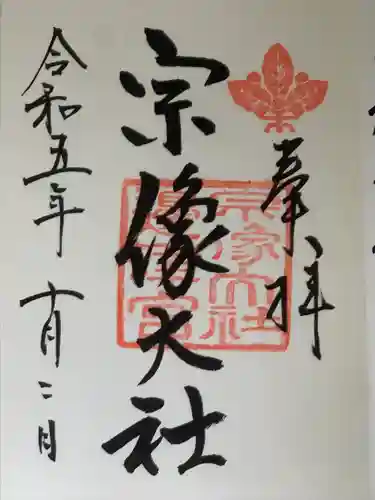 奉拝
宗像大社
令和五年
十月二日
宗像大社